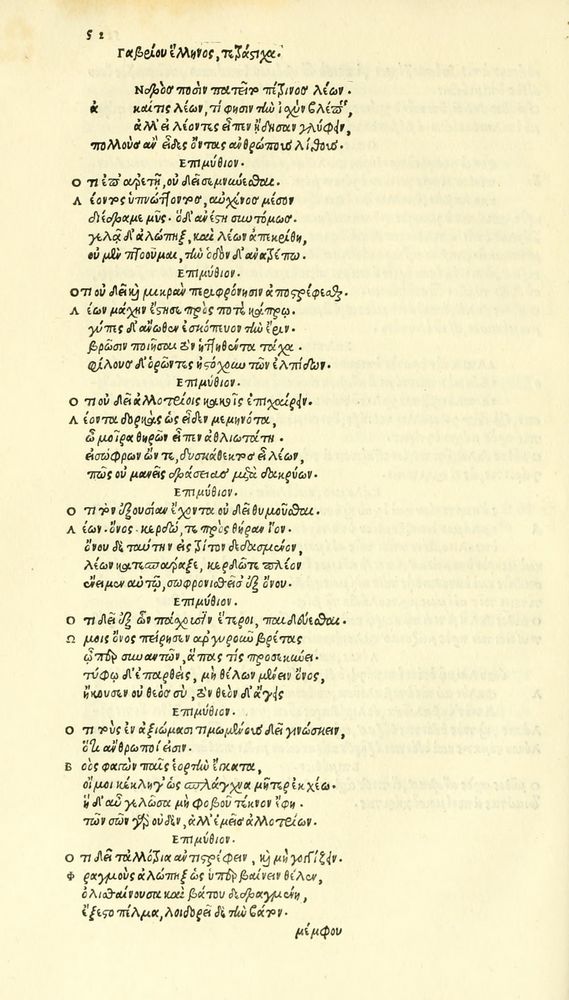 52
Γαβρίου ἕλληνος, τετράστιχα.
Νοβρὸς ποσὶν πατεῖτο πέτρινος λέων.
καί τις λέων, τί φησιν τὴν ἰσχὺν βλέπεις,
ἀλλ' εἰ λέοντες εἶπεν ᾔδησαν γλύφειν,
πολλοὺς ἂν εἶδες ὄντας ἀνθρώπους λίθους.
Επιμύθιον.
Ο τι ἐπ' ἀρετῇ, οὐ δεῖ σεμνύνεσθαι.
Λ έοντος ὑπνώττοντος, αὐχένος μέσον
διέδραμε μῦς. ὁ δ' ἀνέστη συντόμως.
γελᾷ δ' ἀλώπηξ, καὶ λέων ἀπεκρίθη,
οὐ μῦν πτοοῦμαι, τὴν ὁδὸν δ' ἀνατρέπω.
Επιμύθιον.
Οτι οὐ δεῖ καὶ μικρὰν περιφρόνησιν ἀποστρέφεσθαι.
Λ έων μάχην ἔστησε πρός ποτε κάπρῳ.
γύπες δ' ἄνωθεν ἐσκόπευον τὴν ἔριν.
βρῶσιν ποιῆσαι τὸν ἡττηθέντα τάχα.
φίλους δ' ὁρῶντες ἠστόχουν τῶν ἐλπίδων.
Επιμύθιον.
Ο τι οὐ δεῖ ἀλλοτρίοις κακοῖς ἐπιχαίρειν.
Λ έοντα δορκὰς ὡς εἶδεν μεμηνότα,
ὦ μοῖρα θηρῶν εἶπεν ἀθλιωτάτη.
εἰ σώφρων ὤν τε, δυσκάθεκτος εἶ λέων,
πῶς οὐ μανεὶς δράσειας μετὰ δακρύων.
Επιμύθιον.
Ο τι τὸν ἐξουσίαν ἔχοντα οὐ δεῖ θυμοῦσθαι.
Λ έων. ὄνος. κερδώ, τε πρὸς θήραν ἴον.
ὄνου δὲ ταύτην εἰς τρίτον δεδασμένου,
λέων κατεσπάραξε, κερδὼ τε πλέον
ἔνειμεν αὐτῷ, σωφρονισθεῖσ' ἐξ ὄνου.
Επιμύθιον.
Ο τι δεῖ ἐξ ὧν πάσχουσιν ἕτεροι, παιδεύεσθαι.
Ω μοις ὄνος πείρησεν ἀργυροῦν βρέτας
ᾧ περ συναντῶν, ἅπας τις προσεκύνει.
τύφῳ δ' ἐπαρθεὶς, μὴ θέλων μένειν ὄνος,
ἤκουσεν οὐ θεὸς σύ, τὸν θεὸν δ' ἄγεις
Επιμύθιον.
Ο τι τοὺς ἐν ἀξιώμασι τιμωμένους δεῖ γινώσκειν,
ὅτι ἄνθρωποί εἰσιν.
Β οὸς φαγὼν παῖς ἑορτὴν ἔγκατα,
οἴμοι κέκληγ' ὡς σπλάγχνα μῆτερ ἐκχέω.
ἡ δ' αὖ γελῶσα μὴ φοβοῦ τέκνον ἔφη.
τῶν σῶν γὰρ οὐδέν, ἀλλ' ἐμεῖς ἀλλοτρίων.
Επιμύθιον.
Ο τι δεῖ τἀλλότρια ἀντιστρέφειν, καὶ μὴ γογγίζειν.
Φ ραγμοὺς ἀλώπηξ ὡς ὑπερβαίνειν θέλων,
ὀλισθαίνουσα καὶ βάτου δεδραγμένη,
ἔξεστο πέλμα, λοιδορεῖ δὲ τὴν βάτον.
μέμφου